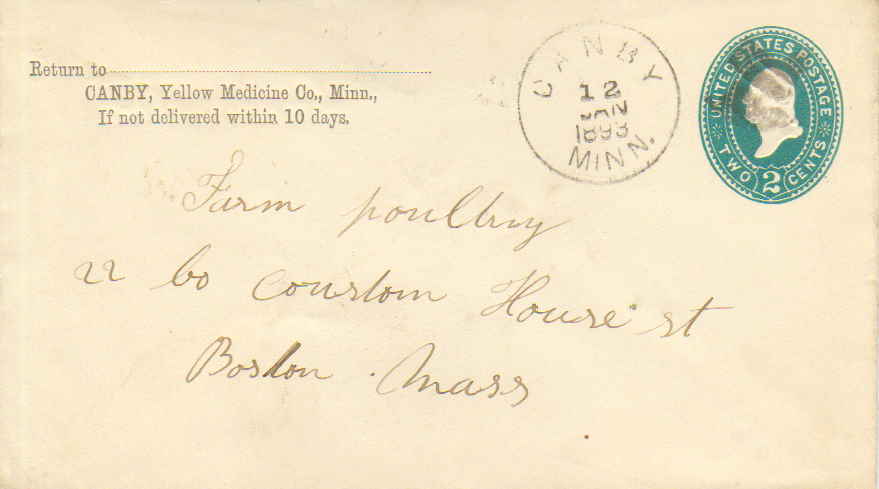 Return to
CANBY, Yellow Medicine Co., Minn.,
If not delivered within 10 days.
CANBY
12
JAN
1893
MINN.
UNITED STATES POSTAGE
TWO 2 CENTS
Farm poultry
22 bo courtom House st
Boston. Mass